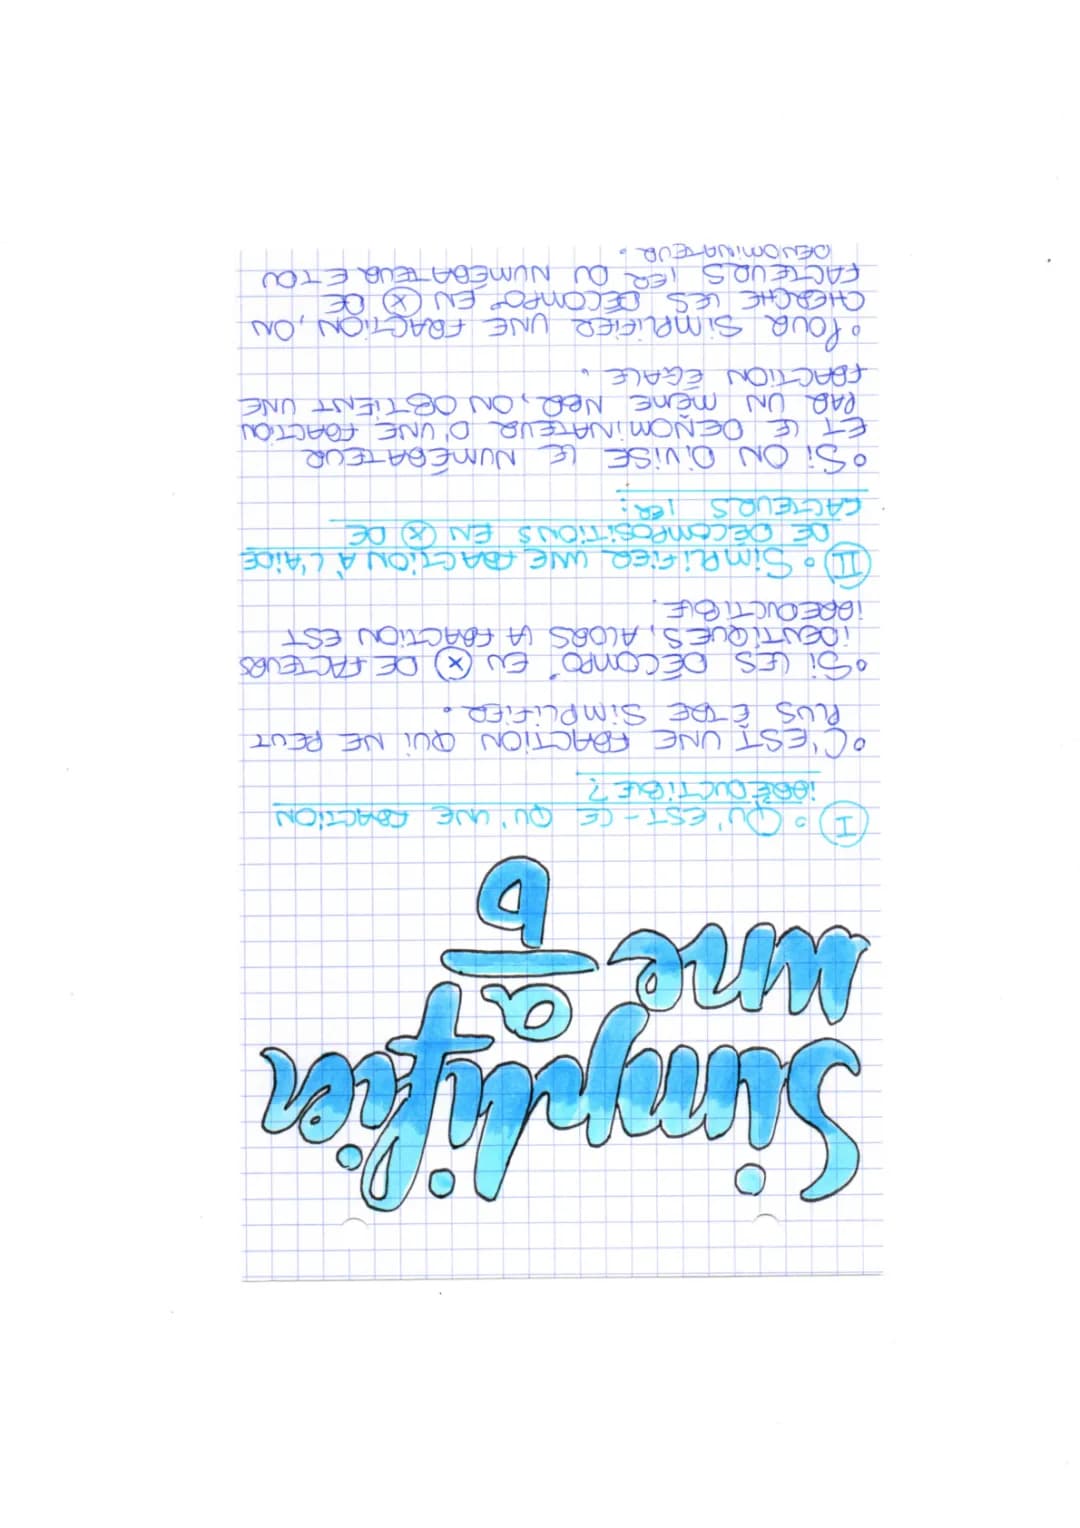 Simplifier
une a
b
I • QU'EST-CE QU'UNE FRACTION
iRRÉDUCTiBLE ?
• C'EST UNE FRACTION QUi NE PEUT
PLUS ÊTRE SiMPLiFiER.
• Si LES DÉCOMPO° EN ⓧ DE FACTEURS
iDENTiQUES, ALORS LA FRACTiON EST
iRREDUCTiBLE.
II • SiMPLiFiER UNE FRACTiON À L'AiDE
DE DÉCOMPOSiTiONS EN ⓧ DE
FACTEURS 1ER :
• Si ON DiViSE LE NUMÉRATEUR
ET LE DENOMiNATEUR D'UNE FRACTiON
PAR UN MÊME NBR, ON OBTiENT UNE
FRACTiON ÉGALE.
• POUR SiMPLiFiER UNE FRACTiON, ON
CHERCHE LES DÉCOMPO° EN ⓧ DE
FACTEURS 1ER DU NUMÉRATEUR ET DU
DENOMiNATEUR.